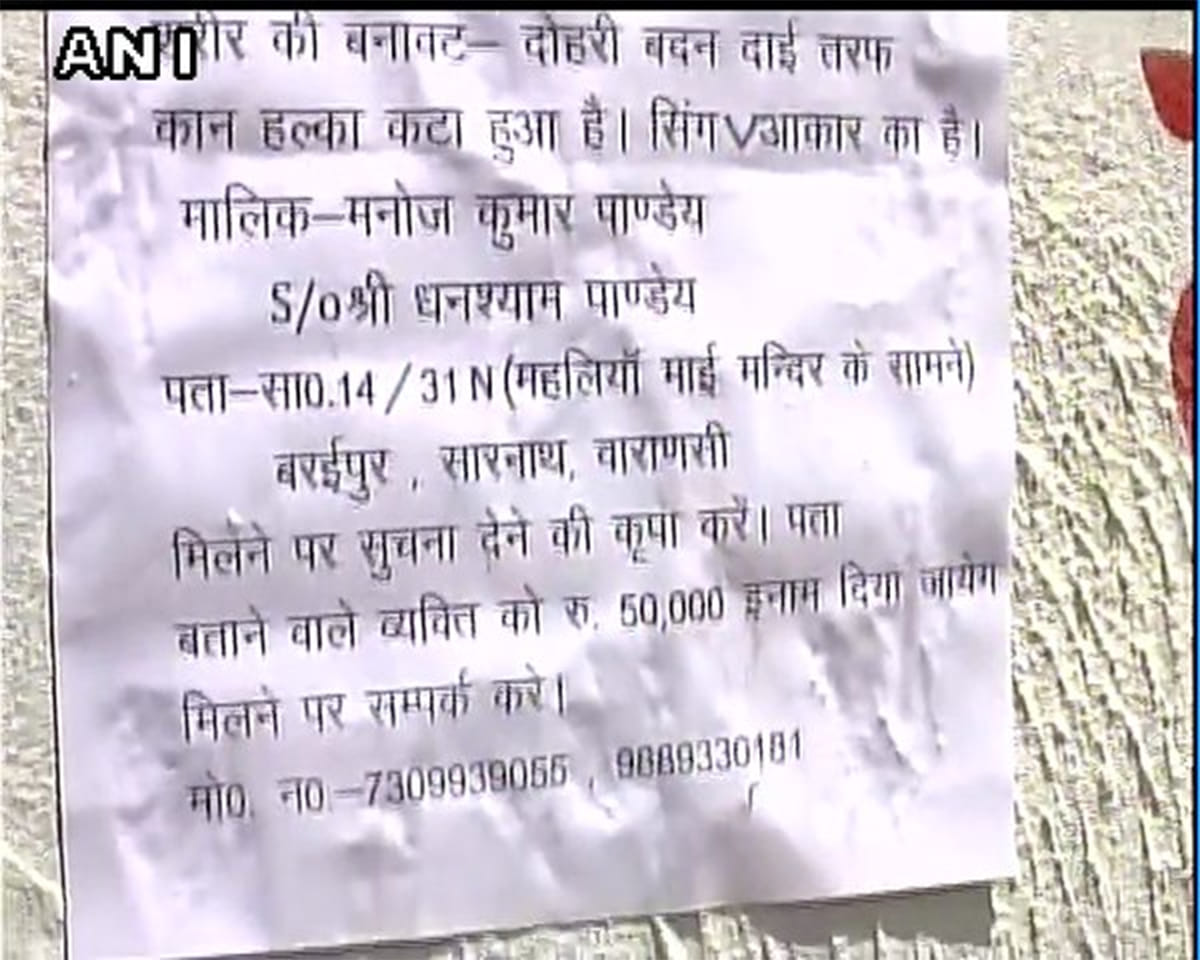 ANI
शरीर की बनावट– दोहरी बदन दाई तरफ
कान हल्का कटा हुआ है। सिंग V आकार का है।
मालिक–मनोज कुमार पाण्डेय
S/o श्री धनश्याम पाण्डेय
पता–सा0.14 / 31 N (महलियाॅ माई मन्दिर के सामने)
बरईपुर , सारनाथ, वाराणसी
मिलने पर सुचना देने की कृपा करें। पता
बताने वाले व्यक्ति को रु. 50,000 इनाम दिया जायेग
मिलने पर सम्पर्क करे।
मो0. न0.–7309939055 , 9889330181